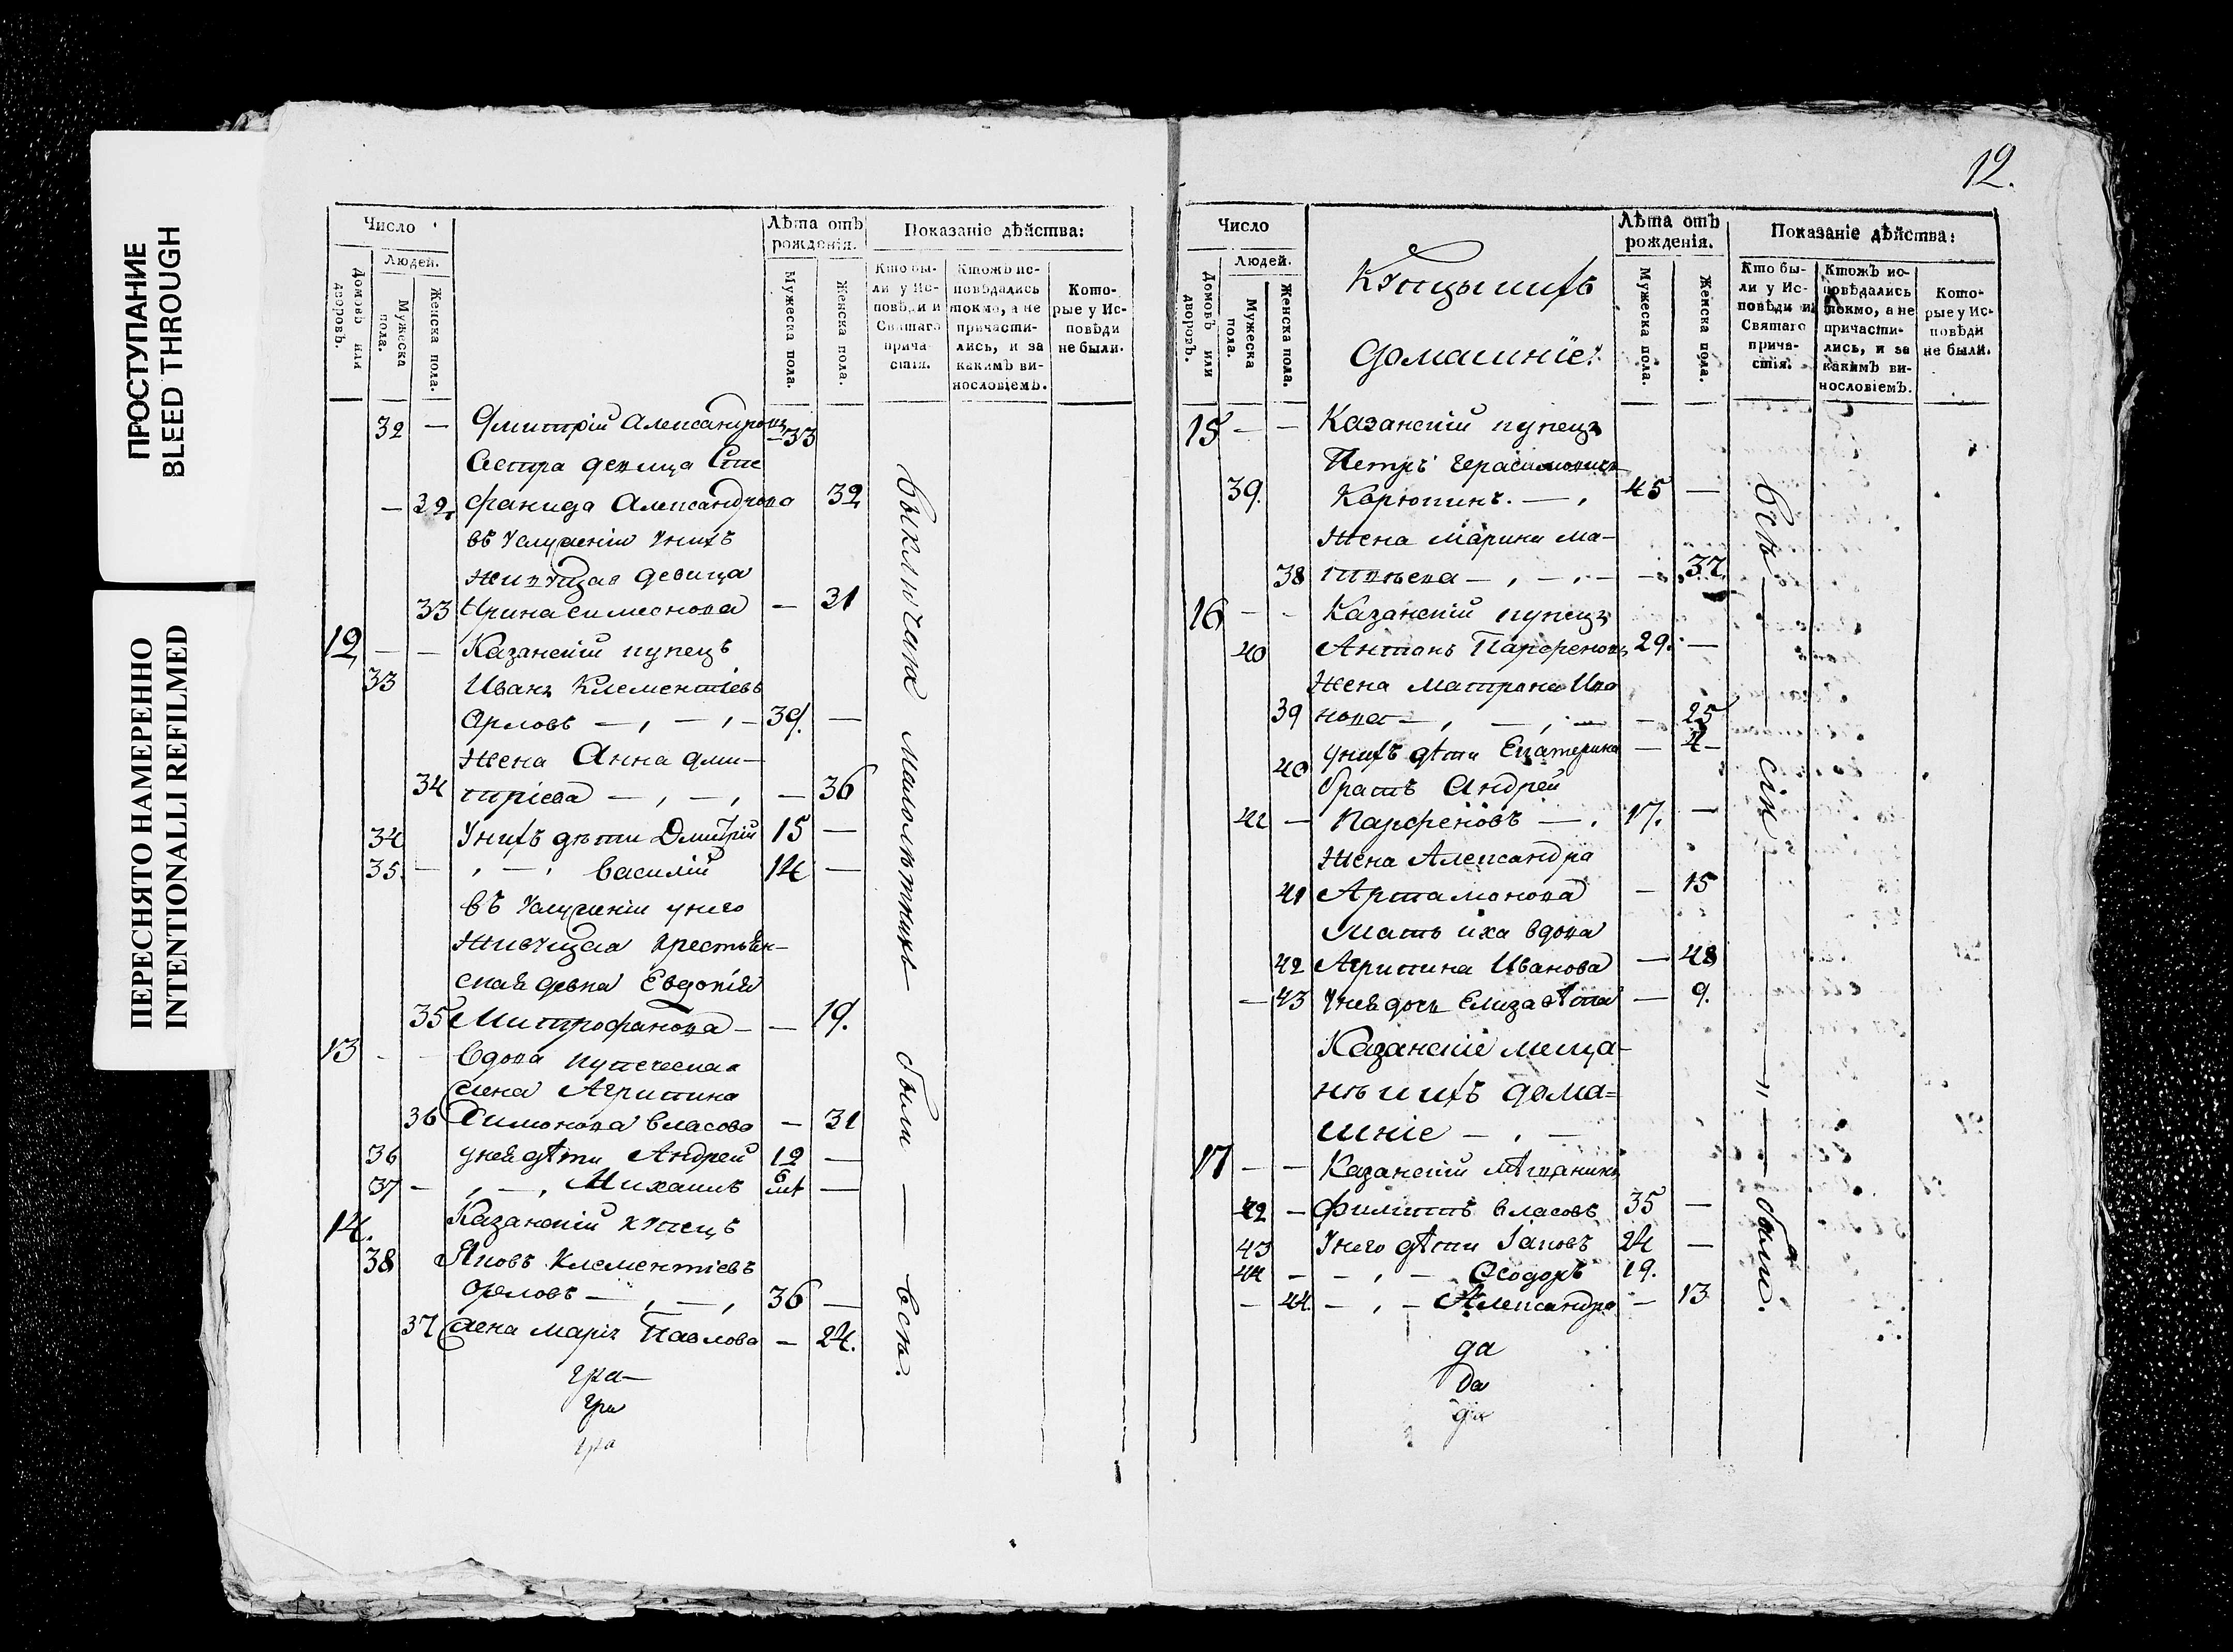 ПРОСТУПАНИЕ
BLEED THROUGH
ПЕРЕСНЯТО НАМЕРЕННО
INTENTIONALLI REFILMED
Число
Людей.
Домовъ или дворовъ.
Мужеска пола.
Женска пола.
Лѣта отъ рожденія.
Мужеска пола.
Женска пола.
Показаніе дѣйства:
Кто бы-
ли у Ис-
повѣди и
Святаго
прича-
стія.
Ктожъ ис-
повѣдались
токмо, а не
причасти-
лись, и за
какимъ ви-
нословіемъ.
Кото-
рые у Ис-
повѣди
не были.
32 — Дмитрій Александровъ — 33
Сестра девица Сте
— 32 фанида Александрова 32
въ услуженіи унихъ
живущая девица
33 Ирина Симеонова — 31
12 — — Казанскій купецъ
33 Иванъ Клементіевъ
Орловъ — , — , — 39. —
Жена Анна Дми—
34 тріева — , — , — 36
34 Унихъ дѣти Дмитрій 15 —
35. — , — , Василій 14 —
въ услуженіи унего
живущая крестьян—
ская девка Евдокія
35 Митрофанова — — 19.
13 - - Вдова купеческая
жена Агрипина
36 Симонова Власова — 31
36 унея дѣти Андрей 12 —
37 — , — , Михаилъ 6 лѣт —
14. Казанскій купецъ
38 Яковъ Клементіевъ
Орловъ — , — , 36 —
37 Жена Марія Павлова — 24.
гра—
гра
гра
Выключая малолѣтнихъ были — всѣ.
12.
Число
Людей.
Домовъ или дворовъ.
Мужеска пола.
Женска пола.
Купцы ихъ
домашніе:
Лѣта отъ рожденія.
Мужеска пола.
Женска пола.
Показаніе дѣйства:
Кто бы-
ли у Ис-
повѣди и
Святаго
прича-
стія.
Ктожъ ис-
повѣдались
токмо, а не
причасти-
лись, и за
какимъ ви-
нословіемъ.
Кото-
рые у Ис-
повѣди
не были.
15 — — Казанскій купецъ
Петръ Герасимовичъ
39. Корюкинъ. — , 45 —
Жена Марина Ма—
38 твѣева — , — , — — 37
16 — - Казанскій купецъ
40 Антонъ Парфеновъ 29. —
Жена Матрона Ива
39 нова — , — , — — 25
40 унихъ дѣти Екатерина — 4 —
братъ Андрей
41 — Парфеновъ — . 17. —
Жена Александра
41 Артамонова — 15
Мать ихъ вдова
42 Агрипина Иванова — 48
— 43 Унея дочь Елизавѣта — 9.
Казанскіе меща-
нѣ и ихъ дома=
шніе — , —
17 — — Казанскій мѣщанинъ
42 — Филиппъ Власовъ 35 —
43 Унего дѣти Іаковъ 24 —
44 — — , — Ѳеодоръ 19.
— 44. — , — Александра — 13
да
да
да
Всѣ — сіи — " — были.